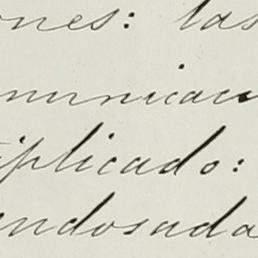 ones: las
municacio
iplicado:
endosada